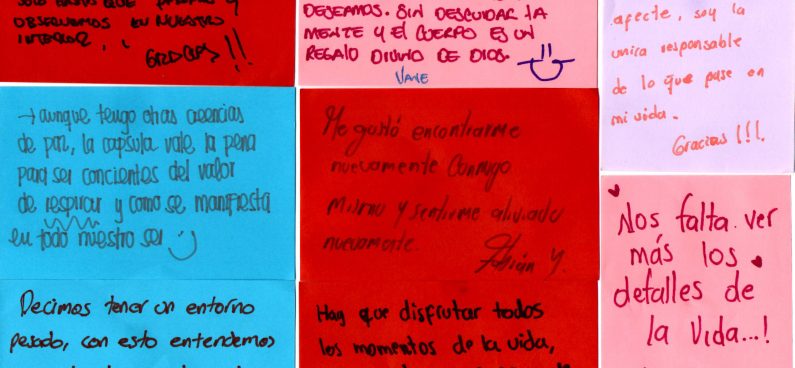 OBSERVEMOS EN NUESTRO
INTERIOR,
GRACIAS!!
DESEAMOS. SIN DESCUIDAR LA
MENTE Y EL CUERPO ES UN
REGALO DIVINO DE DIOS.
VANE
afecte, soy la
unica responsable
de lo que pase en
mi vida.
Gracias !!!.
→ aunque tengo otras creencias
de paz, la capsula vale la pena
para ser concientes del valor
de respirar y como se manifiesta
en todo nuestro ser
Me gustó encontrarme
nuevamente Conmigo
Mismo y sentirme aliviado
nuevamente.
Fabián Y.
Nos falta ver
más los
detalles de
la Vida...!
Decimos tener un entorno
pesado, con esto entendemos
Hay que disfrutar todos
los momentos de la vida,